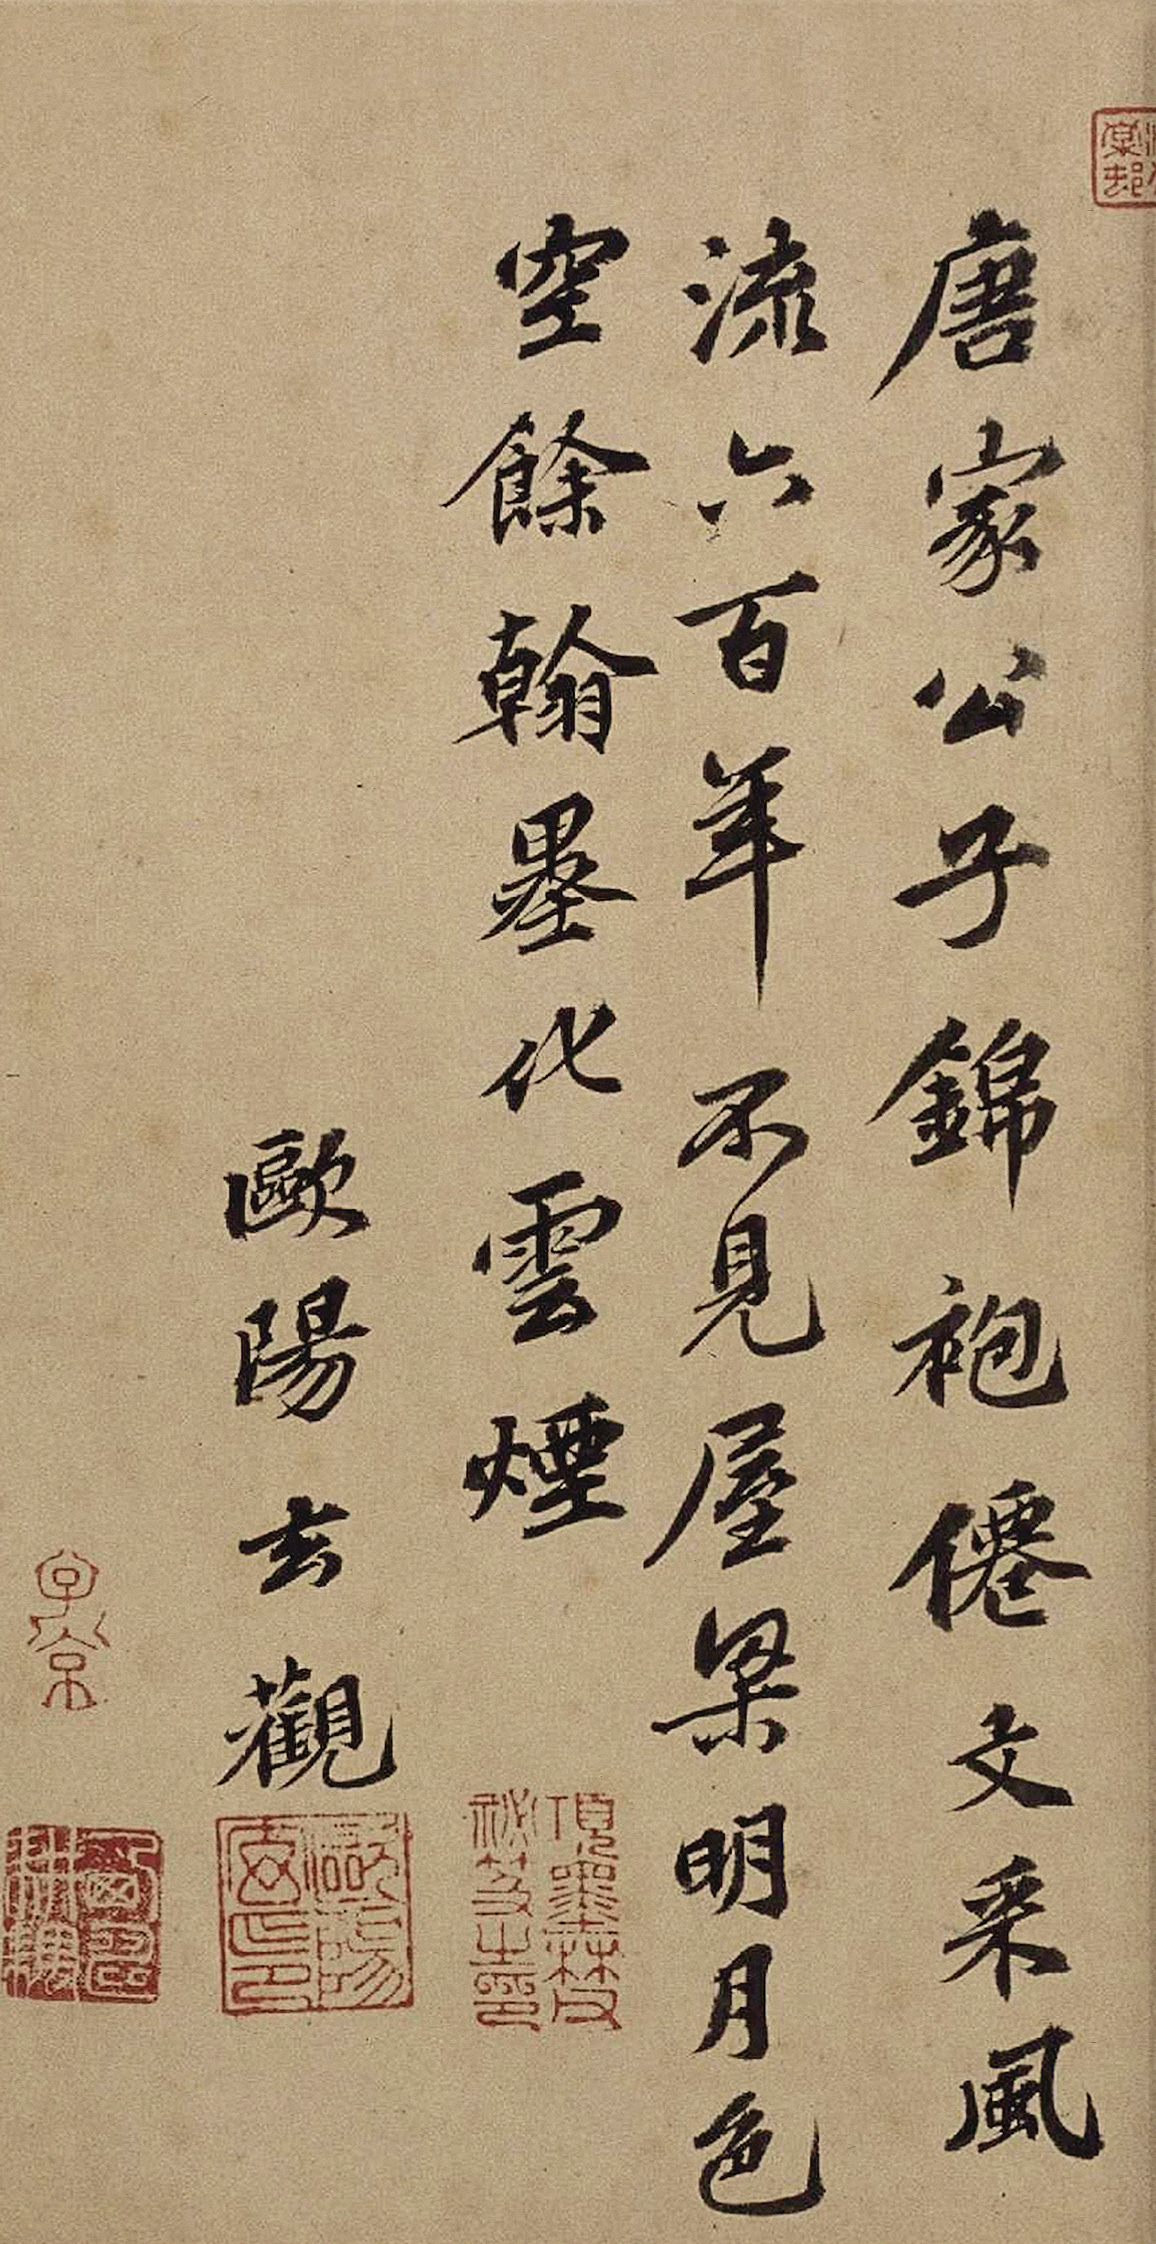 唐家公子錦袍僊文采風
流六百年不見屋梁明月色
空餘翰墨化雲煙
歐陽玄觀
歐陽玄印
項墨林父秘笈之印
子京